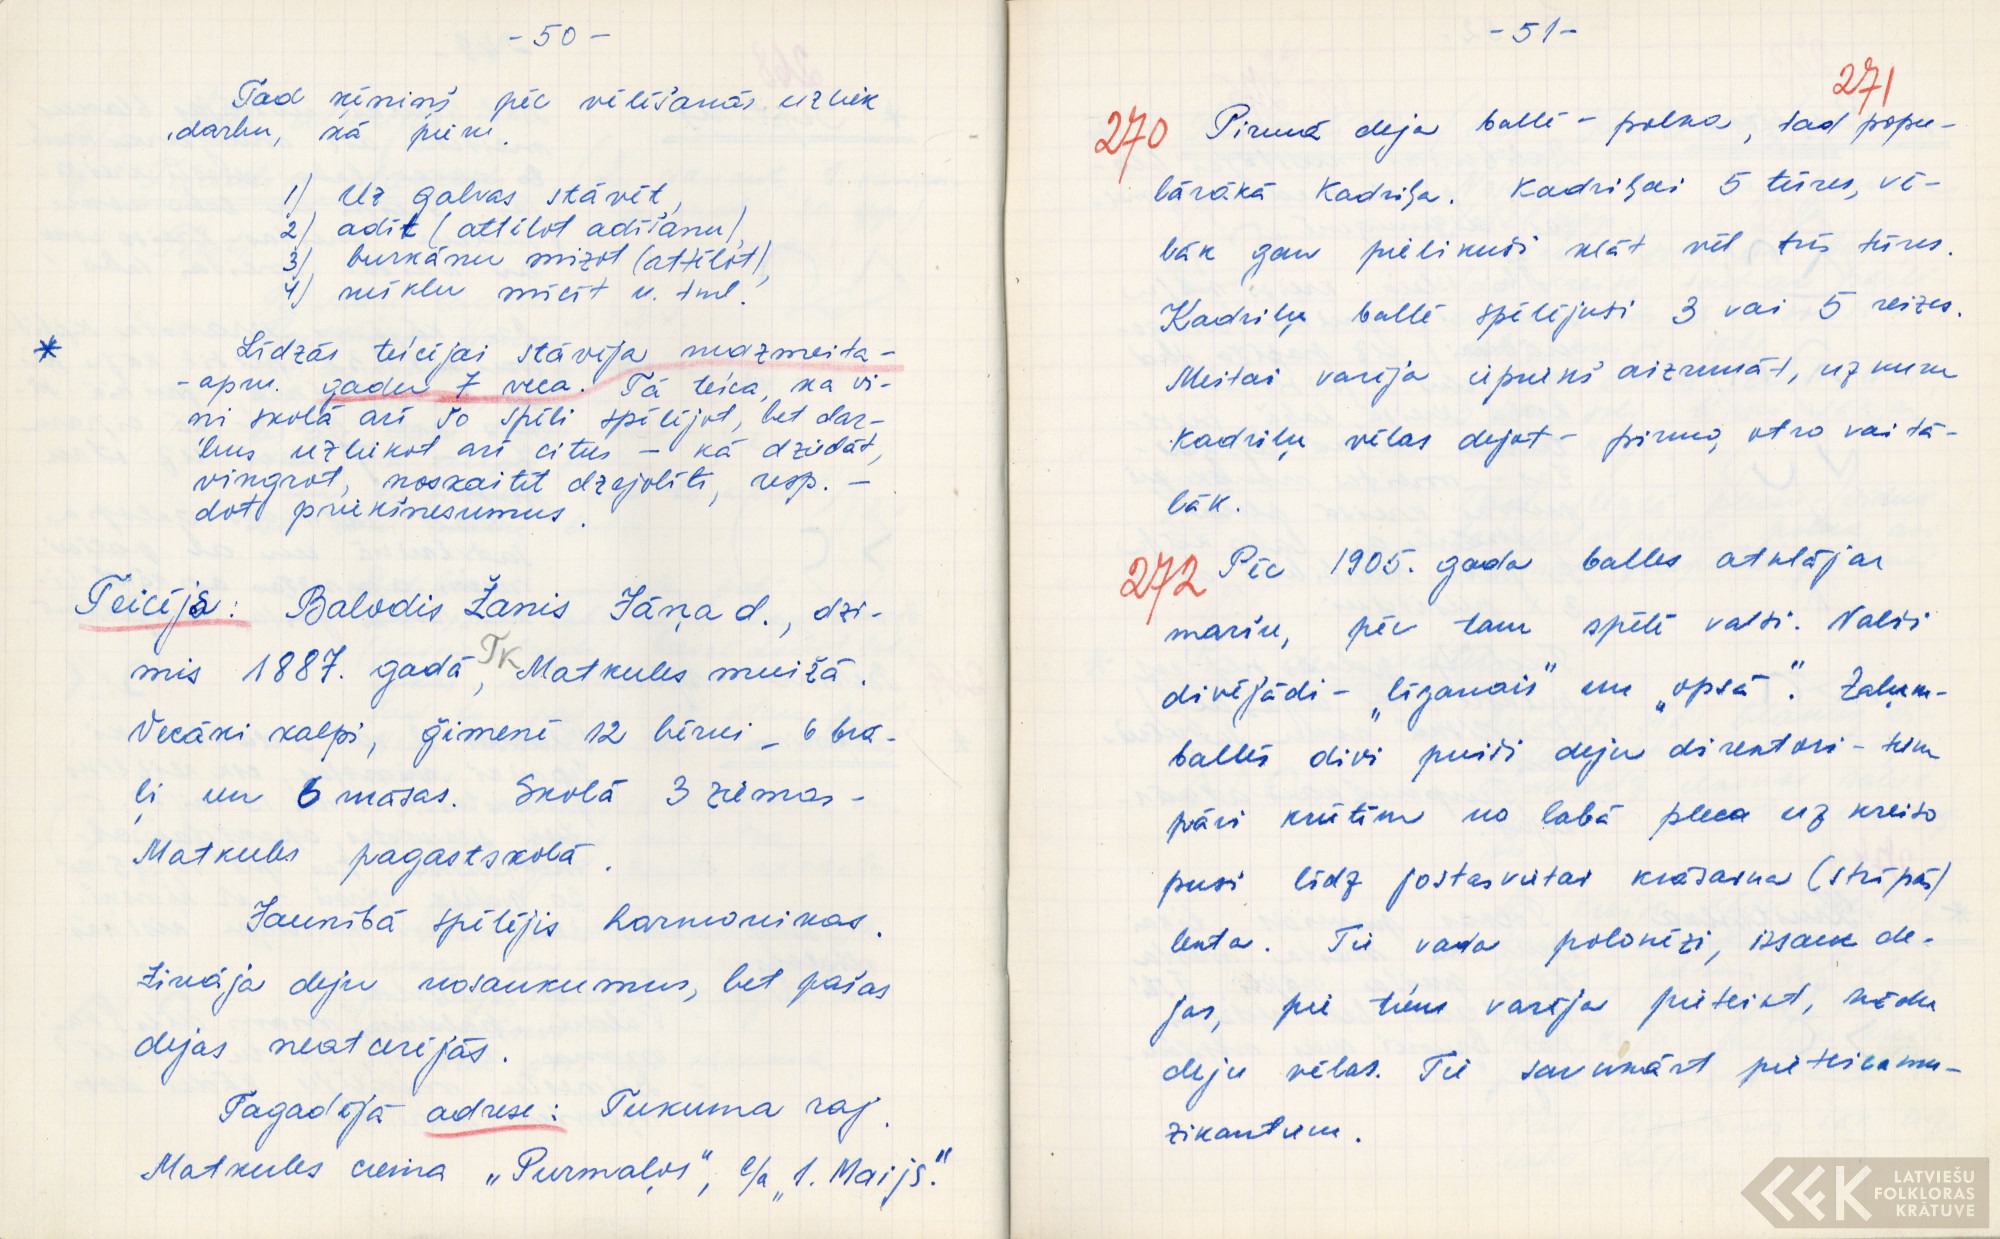 - 50 -
Tad ķēniņš pēc vēlēšanās uzliek
darbu, kā piem.
1) Uz galvas stāvēt,
2) adīt (attēlot adīšanu),
3) burkānu mizot (attēlot),
4) mīklu mīcīt u. tml.
* Līdzās teicējai stāvēja mazmeita -
- apm. gadu 7 veca. Tā teica, ka vi-
ņi skolā arī šo spēli spēlējot, bet dar-
bus uzliekot arī citus - kā dziedāt,
vingrot, noskaitīt dzejolīti, resp. -
dot priekšnesumus.
Teicējs: Balodis Žanis Jāņa d., dzi-
mis 1887. gadā, Tk Matkules muižā.
Vecāki kalpi, ģimenē 12 bērni - 6 brā-
ļi un 6 māsas. Skolā 3 ziemas -
Matkules pagastskolā.
Jaunībā spēlējis harmonikas.
Zināja deju nosaukumus, bet pašas
dejas neatcerējās.
Tagadējā adrese: Tukuma raj.
Matkules ciema „Purmaļos", c/a „1. Maijs".
- 51 -
271
270 Pirmā deja ballē - polka, tad popu-
lārākā Kadriļa. Kadriļai 5 tūres, vē-
lāk gan pielikuši klāt vēl trīs tūres.
Kadriļu ballē spēlējuši 3 vai 5 reizes.
Meitai varēja iepriekš aizrunāt, uz kuru
kadriļu vēlas dejot - pirmo, otro vai tā-
lāk.
272 Pēc 1905. gada balles atklājar
maršu, pēc tam spēlē valsi. Valsi
divējādi - „līganais" un „opsā". Zaļum-
ballēs divi puiši deju direktori - tiem
pāri krūtīm no labā pleca uz kreiso
pusi līdz jostasvietai krāsaina (strīpās)
lenta. Tie vada polonēzi, izsauc de-
jas, pie tiem varēja pieteikt, kādu
deju vēlas. Tie savukārt pieteica mu-
zikantiem.
LATVIEŠU
FOLKLORAS
KRĀTUVE